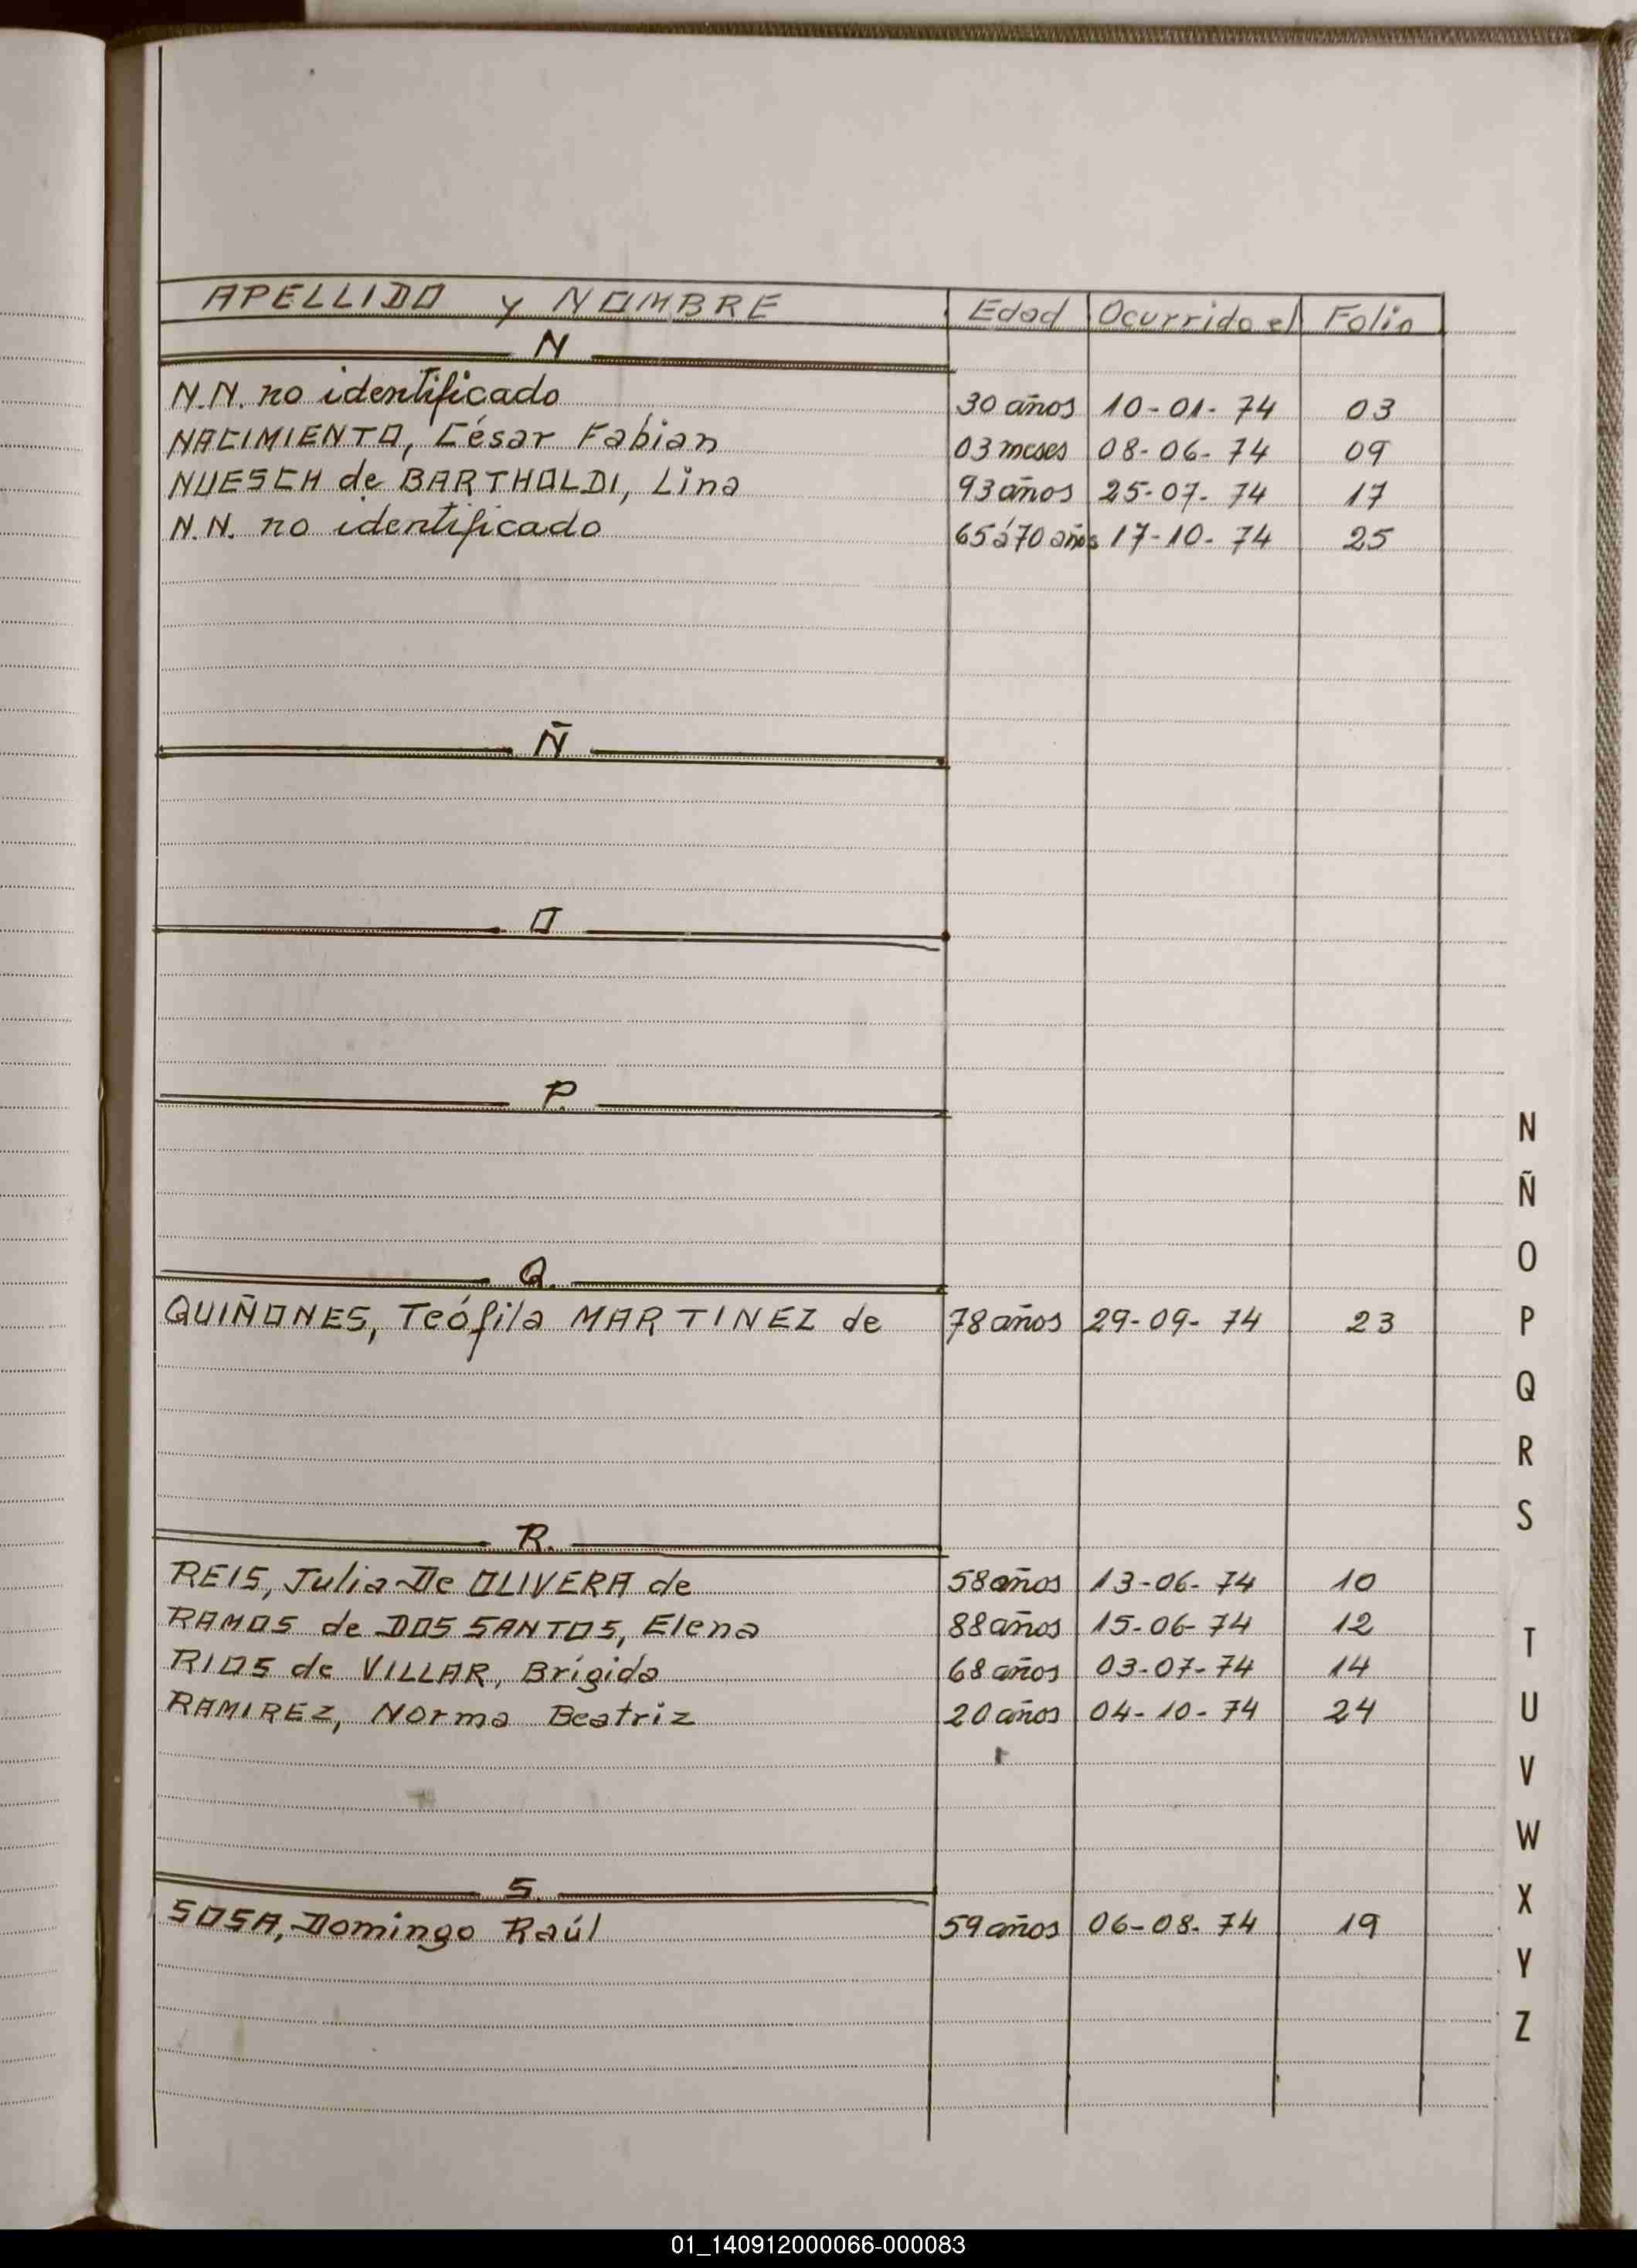 APELLIDO y NOMBRE Edad Ocurrido el Folio
N
N.N. no identificado 30 años 10-01-74 03
NACIMIENTO, César Fabian 03 meses 08-06-74 09
NUESCH de BARTHOLDI, Lina 93 años 25-07-74 17
N.N. no identificado 65 á 70 años 17-10-74 25
Ñ
O
P.
Q.
QUIÑONES, Teófila MARTINEZ de 78 años 29-09-74 23
R.
REIS, Julia De OLIVERA de 58 años 13-06-74 10
RAMOS de DOS SANTOS, Elena 88 años 15-06-74 12
RIOS de VILLAR, Brígida 68 años 03-07-74 14
RAMIREZ, Norma Beatriz 20 años 04-10-74 24
S.
SOSA, Domingo Raúl 59 años 06-08-74 19
N
Ñ
O
P
Q
R
S
T
U
V
W
X
Y
Z
01_140912000066-000083